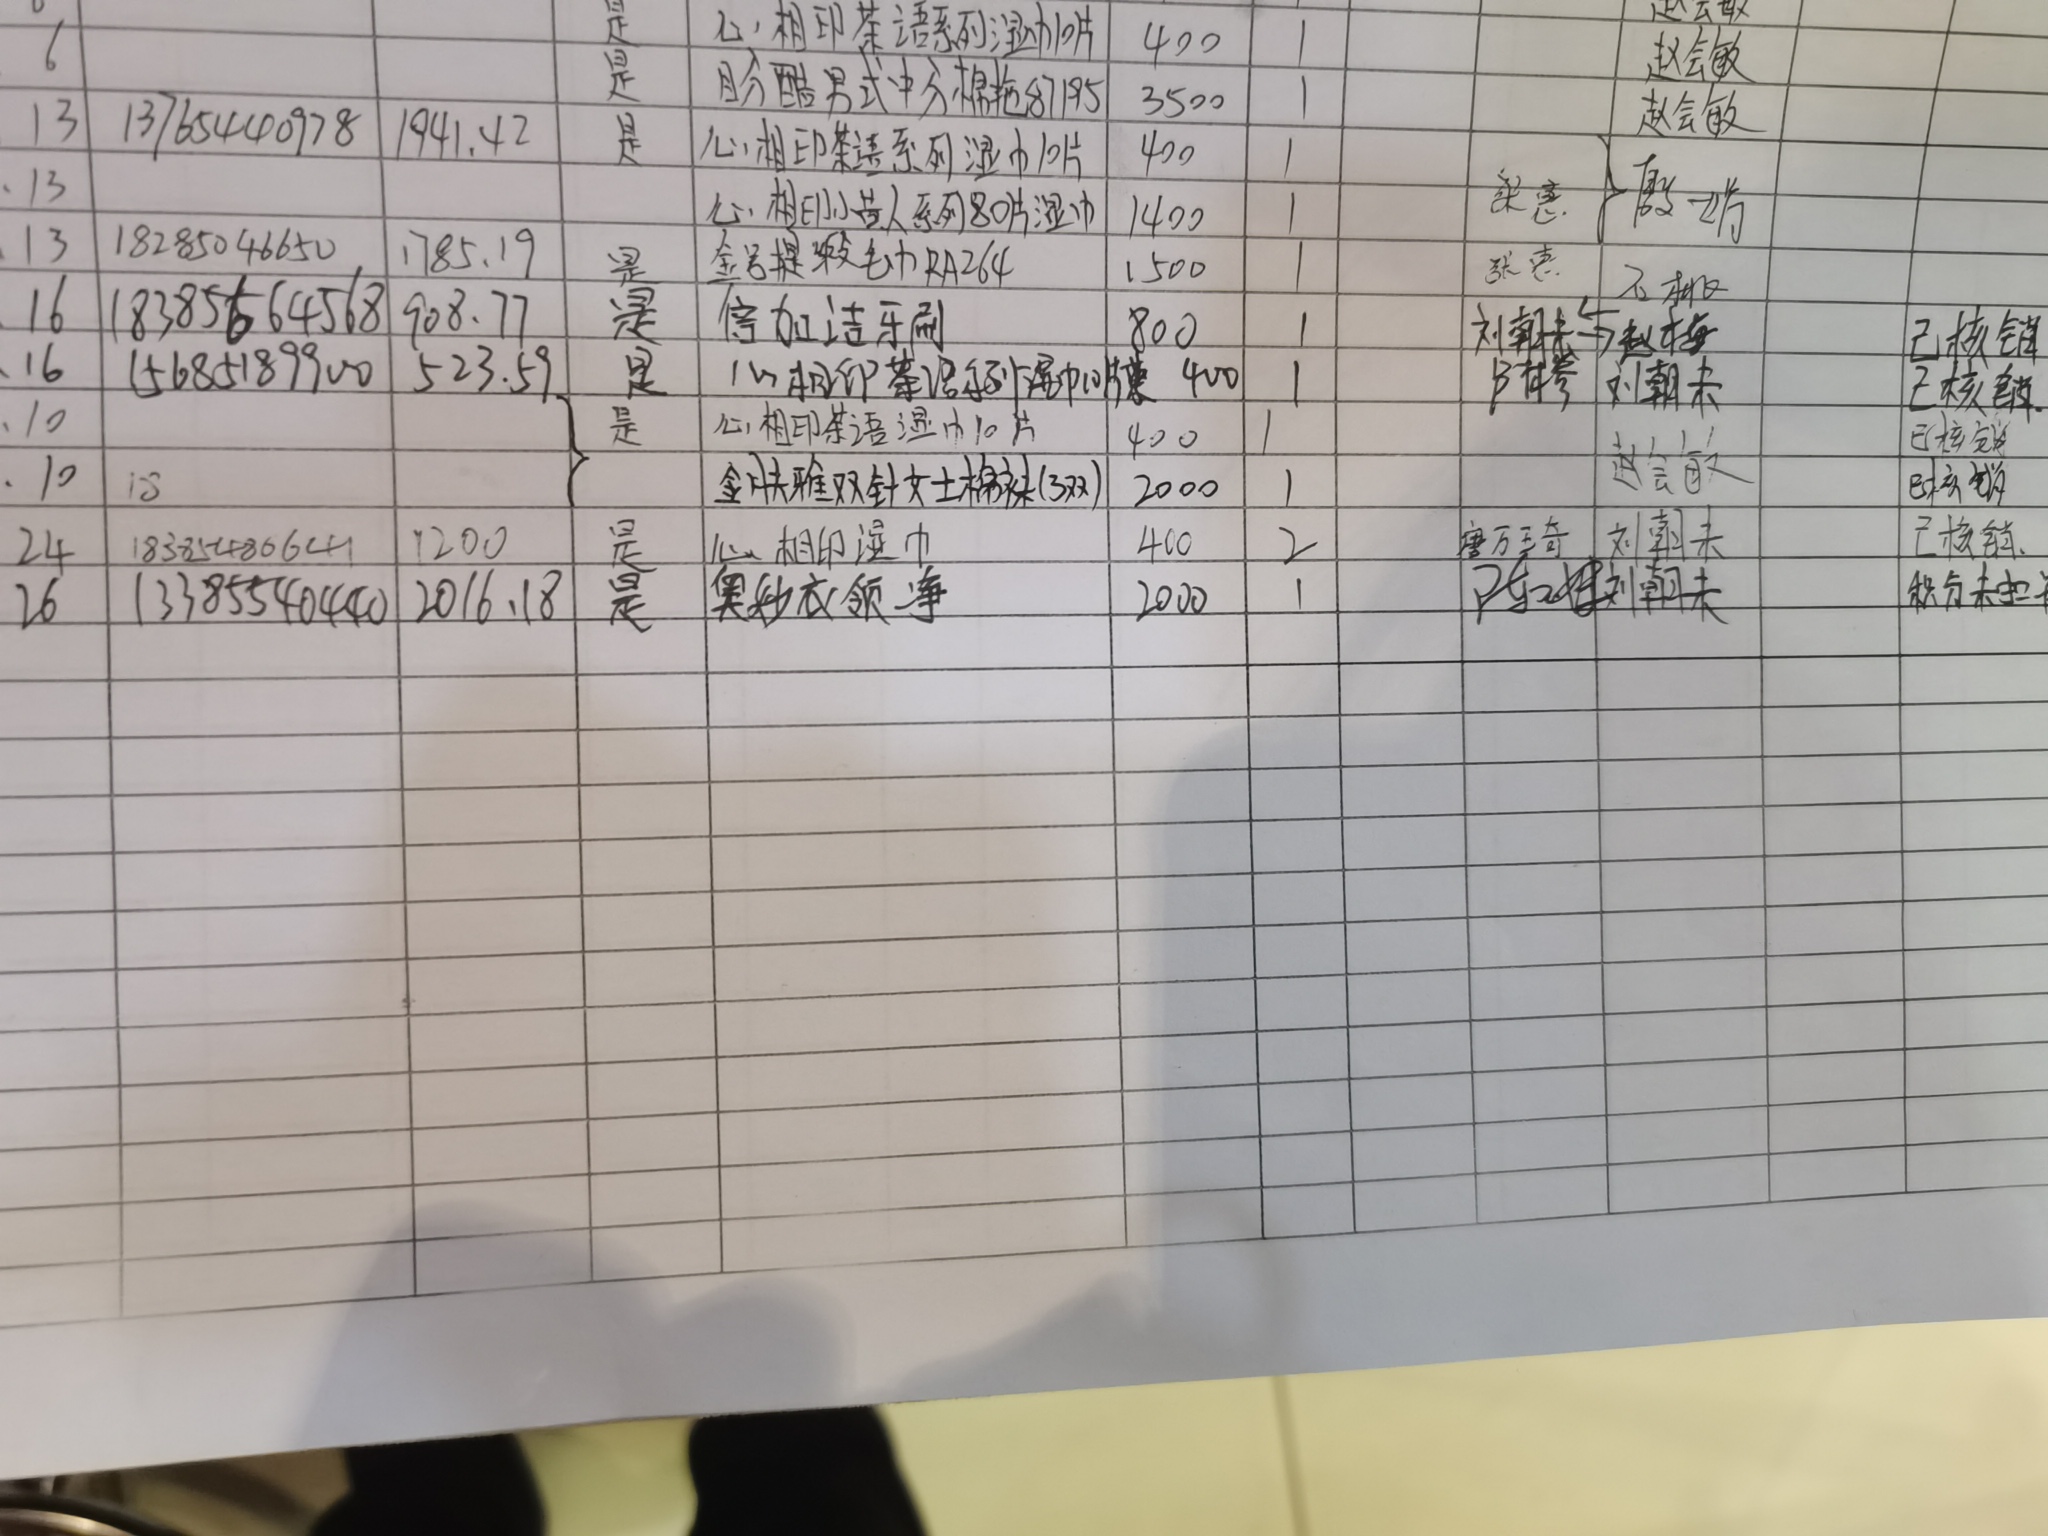 是 心相印茶语系列湿巾10片 400 1 赵会敏
6 是 酷男式中分棉拖87195 3500 1 赵会敏
13 13765440978 1941.42 是 心相印茶语系列湿巾10片 400 1
.13 心相印小黄人系列80片湿巾 1400 1
.13 18285046650 1785.19 是 金号提缎毛巾RA264 1500 1
.16 908.77 是 倍加洁牙刷 800 1 刘朝未 赵梅 已核销
.16 523.59 是 心相印茶语系列湿巾10片装 400 1 刘朝未 已核销.
.10 是 心相印茶语湿巾10片 400 1 赵会敏 已核销
.10 双针女士棉袜(3双) 2000 1 已核销
24 1200 是 心相印湿巾 400 2 刘朝未 已核销.
26 13385540440 2016.18 是 奥妙衣领净 2000 1 刘朝未 积分未扣